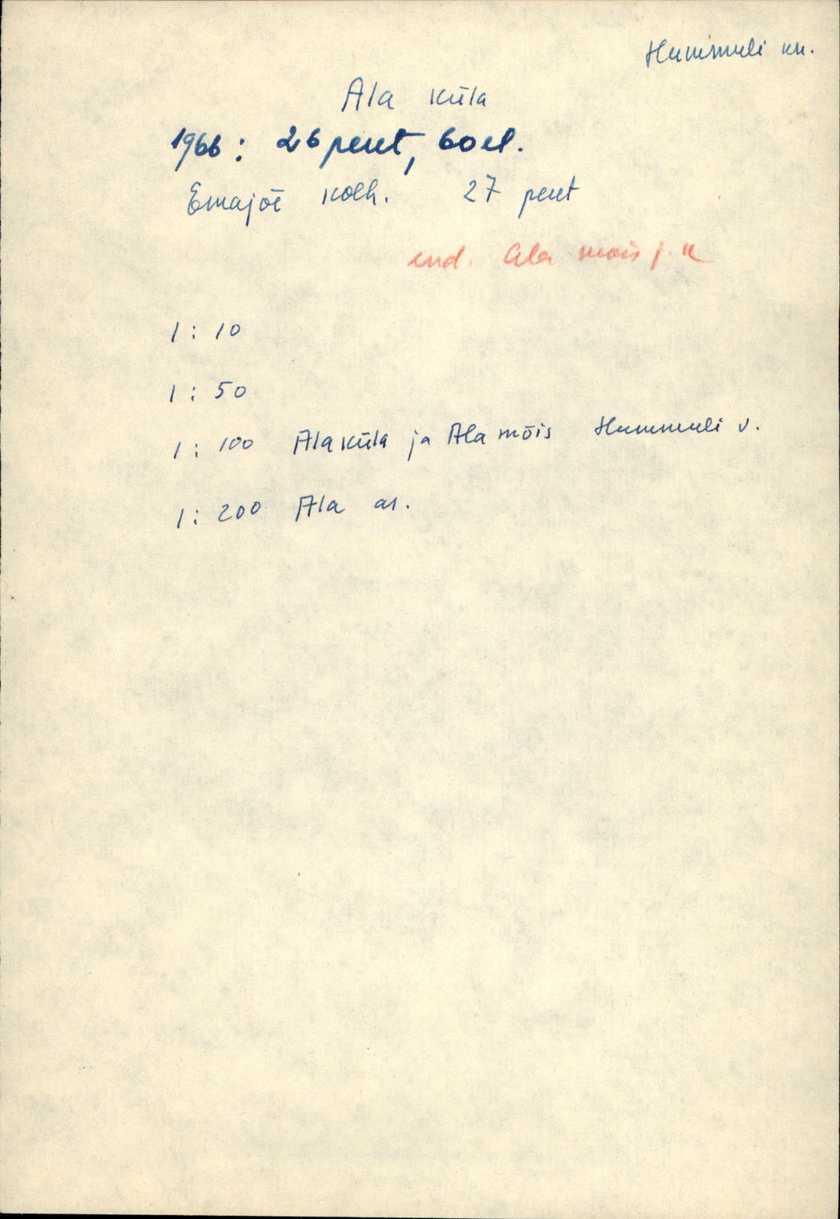 Hummuli kn.
Ala küla
1966: 26 peret, 60 el.
Emajõe kolh. 27 peret
end. Ala mõis j. k
1 : 10
1 : 50
1 : 100 Alaküla ja Ala mõis Hummuli v.
1 : 200 Ala as.